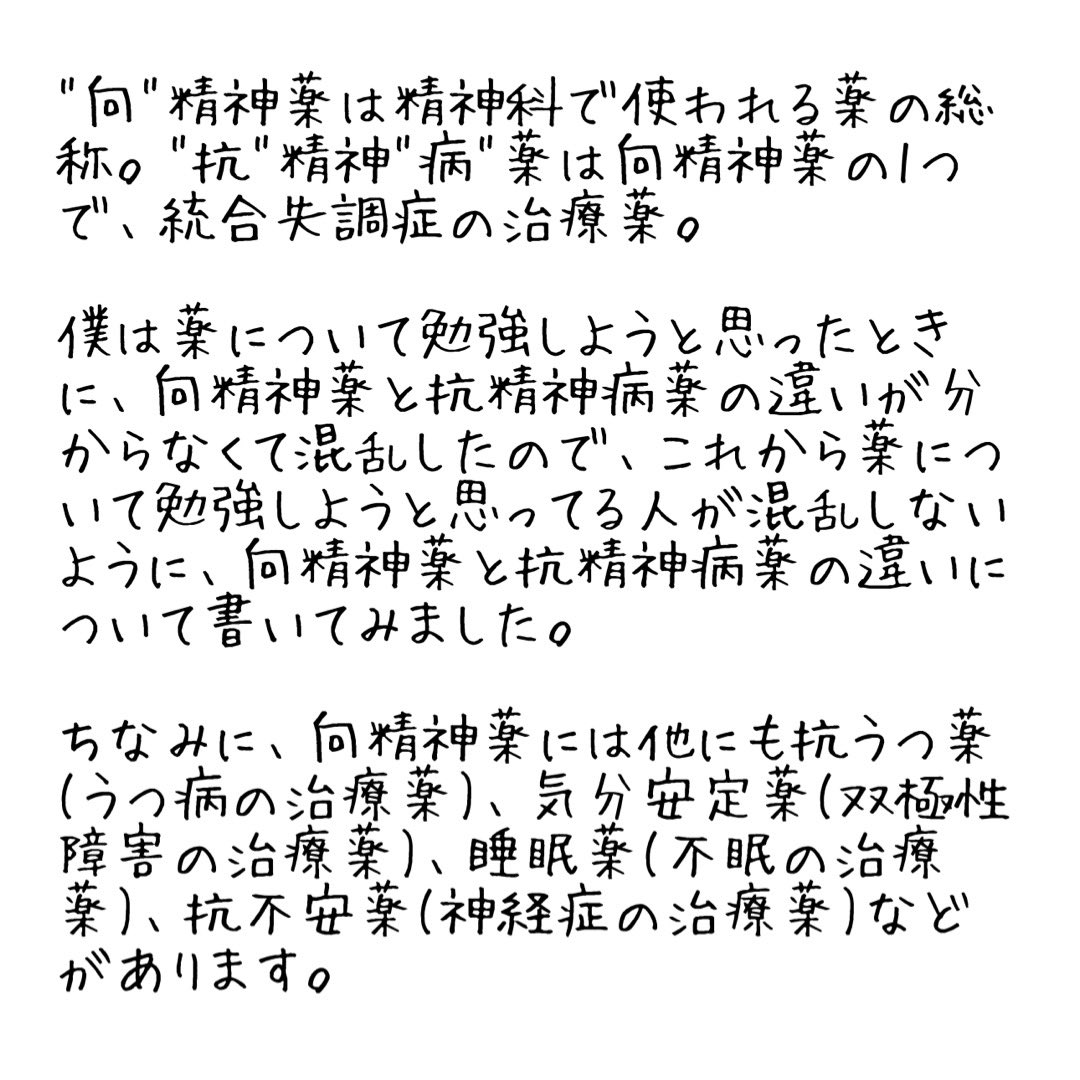 "向"精神薬は精神科で使われる薬の総
称。"抗"精神"病"薬は向精神薬の1つ
で、統合失調症の治療薬。
僕は薬について勉強しようと思ったとき
に、向精神薬と抗精神病薬の違いが分
からなくて混乱したので、これから薬につ
いて勉強しようと思ってる人が混乱しない
ように、向精神薬と抗精神病薬の違いに
ついて書いてみました。
ちなみに、向精神薬には他にも抗うつ薬
(うつ病の治療薬)、気分安定薬(双極性
障害の治療薬)、睡眠薬(不眠の治療
薬)、抗不安薬(神経症の治療薬)など
があります。